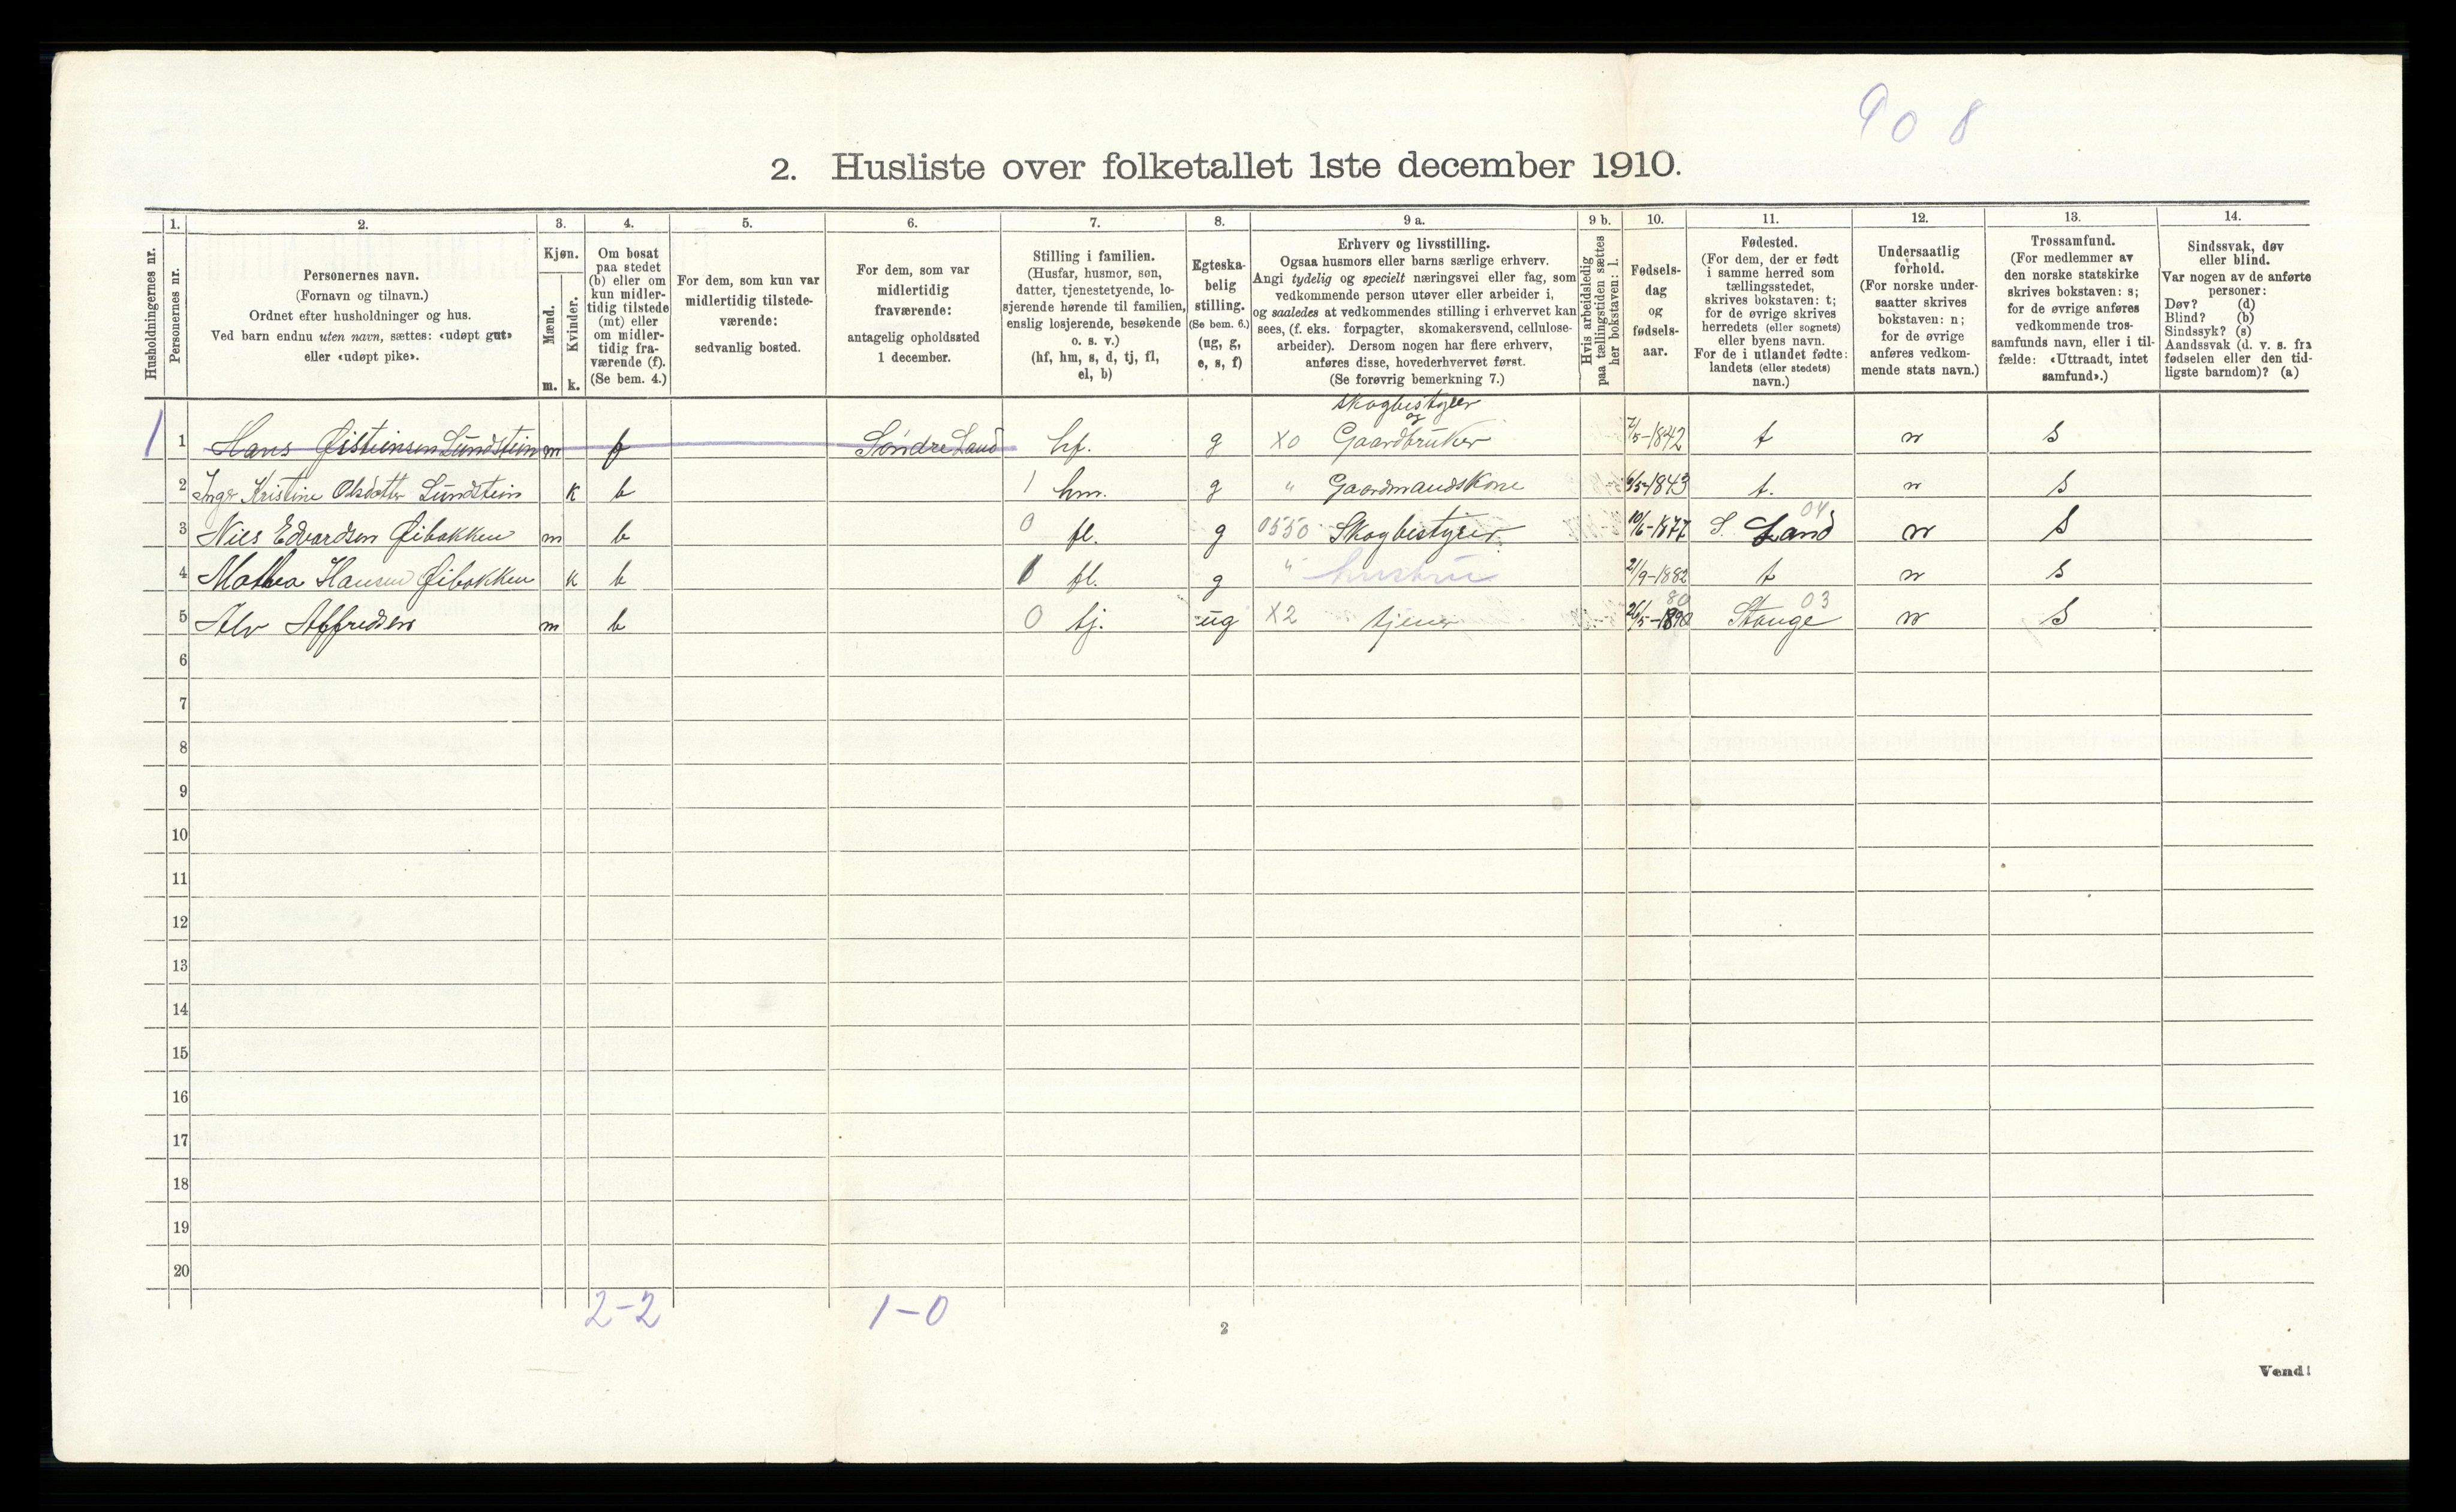 908
2. Husliste over folketallet 1ste december 1910.
Husholdningernes nr.
1.
Personernes nr.
2.
Personernes navn.
(Fornavn og tilnavn.)
Ordnet efter husholdninger og hus.
Ved barn endnu uten navn, sættes: «udøpt gut»
eller «udøpt pike».
3.
Kjøn.
Mænd.
m.
Kvinder.
k.
4.
Om bosat
paa stedet
(b) eller om
kun midler-
tidig tilstede
(mt) eller
om midler-
tidig fra-
værende (f).
(Se bem. 4.)
5.
For dem, som kun var
midlertidig tilstede-
værende:
sedvanlig bosted.
6.
For dem, som var
midlertidig
fraværende:
antagelig opholdssted
1 december.
7.
Stilling i familien.
(Husfar, husmor, søn,
datter, tjenestetyende, lo-
sjerende hørende til familien,
enslig losjerende, besøkende
o. s. v.)
(hf, hm, s, d, tj, fl,
el, b)
8.
Egteska-
belig
stilling.
(Se bem. 6.)
(ug, g,
e, s, f)
9 a.
Erhverv og livsstilling.
Ogsaa husmors eller barns særlige erhverv.
Angi tydelig og specielt næringsvei eller fag, som
vedkommende person utøver eller arbeider i,
og saaledes at vedkommendes stilling i erhvervet kan
sees, (f. eks. forpagter, skomakersvend, cellulose-
arbeider). Dersom nogen har flere erhverv,
anføres disse, hovederhvervet først.
(Se forøvrig bemerkning 7.)
9 b.
Hvis arbeidsledig
paa tællingstiden sættes
her bokstaven: l.
10.
Fødsels-
dag
og
fødsels-
aar.
11.
Fødested.
(For dem, der er født
i samme herred som
tællingsstedet,
skrives bokstaven: t;
for de øvrige skrives
herredets (eller sognets)
eller byens navn.
For de i utlandet fødte:
landets (eller stedets)
navn.)
12.
Undersaatlig
forhold.
(For norske under-
saatter skrives
bokstaven: n;
for de øvrige
anføres vedkom-
mende stats navn.)
13.
Trossamfund.
(For medlemmer av
den norske statskirke
skrives bokstaven: s;
for de øvrige anføres
vedkommende tros-
samfunds navn, eller i til-
fælde: «Uttraadt, intet
samfund».)
14.
Sindssvak, døv
eller blind.
Var nogen av de anførte
personer:
Døv? (d)
Blind? (b)
Sindssyk? (s)
Aandssvak (d. v. s. fra
fødselen eller den tid-
ligste barndom)? (a)
skogbestyer
og
1 1 Hans Øisteinsen Lundstein m f Søndre Land hf. g X0 Gaardbruker 7/5-1842 t n s
2 Inger Kristine Olsdatter Lundstein k b 1 hm. g " Gaardmandskone 6/5-1843 t. n s
3 Nils Edvardsen Øibakken m b 0 fl. g 0550 Skogbestyrer 10/6-1877 S. Land 04 n s
4 Mathea Hansen Øibakken k b 1 fl. g " hustru 21/9-1882 t n s
5 Alv Alfredsen m b 0 tj. ug X2 tjener 26/5-1890 80 Stange 03 n s
6
7
8
9
10
11
12
13
14
15
16
17
18
19
20
2-2 1-0
2
Vend!